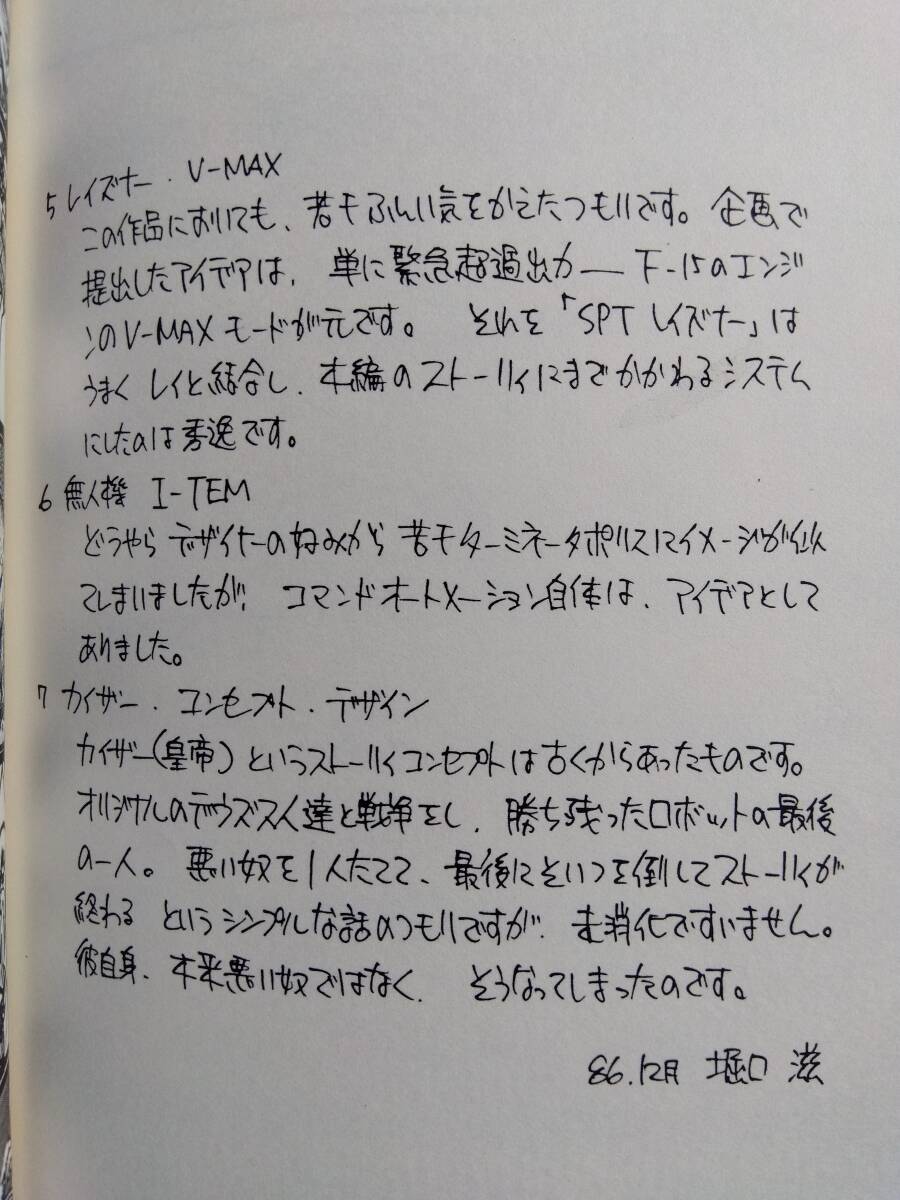 5 レイズナー・V-MAX
この作品においても、若干ふんい気をかえたつもりです。企画で
提出したアイデアは、単に緊急超過出力――F-15のエンジ
ンのV-MAXモードが元です。それを「SPTレイズナー」は
うまくレイと結合し、本編のストーリィにまでかかわるシステム
にしたのは秀逸です。
6 無人機 I-TEM
どうやらデザイナーの好みから若干ターミネータポリスにイメージが似
てしまいましたが、コマンドオートメーション自体は、アイデアとして
ありました。
7 カイザー・コンセプト・デザイン
カイザー(皇帝)というストーリィコンセプトは古くからあったものです。
オリジナルのデウズス人達と戦争をし、勝ち残ったロボットの最後
の一人。悪い奴を1人たてて、最後にそいつを倒してストーリィが
終わるというシンプルな話のつもりですが、未消化ですいません。
彼自身、本来悪い奴ではなく、そうなってしまったのです。
86.12月 堀口 滋